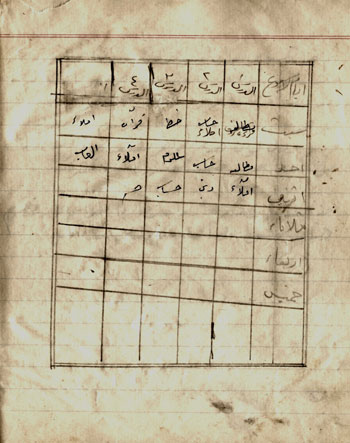 ايام الاسبوع الدرس ١ الدرس ٢ الدرس ٣ الدرس ٤
سبت مطالعه حساب املاء خط قرآن املاء
احد مطالعه حساب علوم املاء العاب
اثنين املاء دين حساب
ثلاثاء
اربعاء
خميس